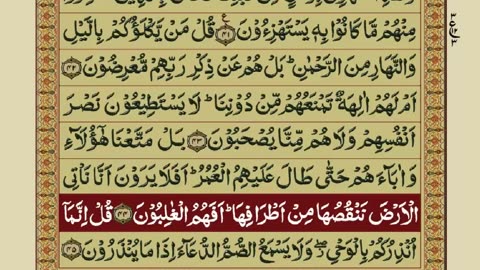 مِنْهُمْ مَّا كَانُوْا بِهٖ يَسْتَهْزِءُوْنَ ﴿۴۱﴾ قُلْ مَنْ يَّكْلَؤُكُمْ بِالَّيْلِ
وَالنَّهَارِ مِنَ الرَّحْمٰنِ ؕ بَلْ هُمْ عَنْ ذِكْرِ رَبِّهِمْ مُّعْرِضُوْنَ ﴿۴۲﴾
اَمْ لَهُمْ اٰلِهَةٌ تَمْنَعُهُمْ مِّنْ دُوْنِنَا ؕ لَا يَسْتَطِيْعُوْنَ نَصْرَ
اَنْفُسِهِمْ وَلَا هُمْ مِّنَّا يُصْحَبُوْنَ ﴿۴۳﴾ بَلْ مَتَّعْنَا هٰۤؤُلَآءِ
وَاٰبَآءَهُمْ حَتّٰى طَالَ عَلَيْهِمُ الْعُمُرُ ؕ اَفَلَا يَرَوْنَ اَنَّا نَاْتِى
الْاَرْضَ نَنْقُصُهَا مِنْ اَطْرَافِهَا ؕ اَفَهُمُ الْغٰلِبُوْنَ ﴿۴۴﴾ قُلْ اِنَّمَاۤ
اُنْذِرُكُمْ بِالْوَحْىِ ۖ وَلَا يَسْمَعُ الصُّمُّ الدُّعَآءَ اِذَا مَا يُنْذَرُوْنَ ﴿۴۵﴾